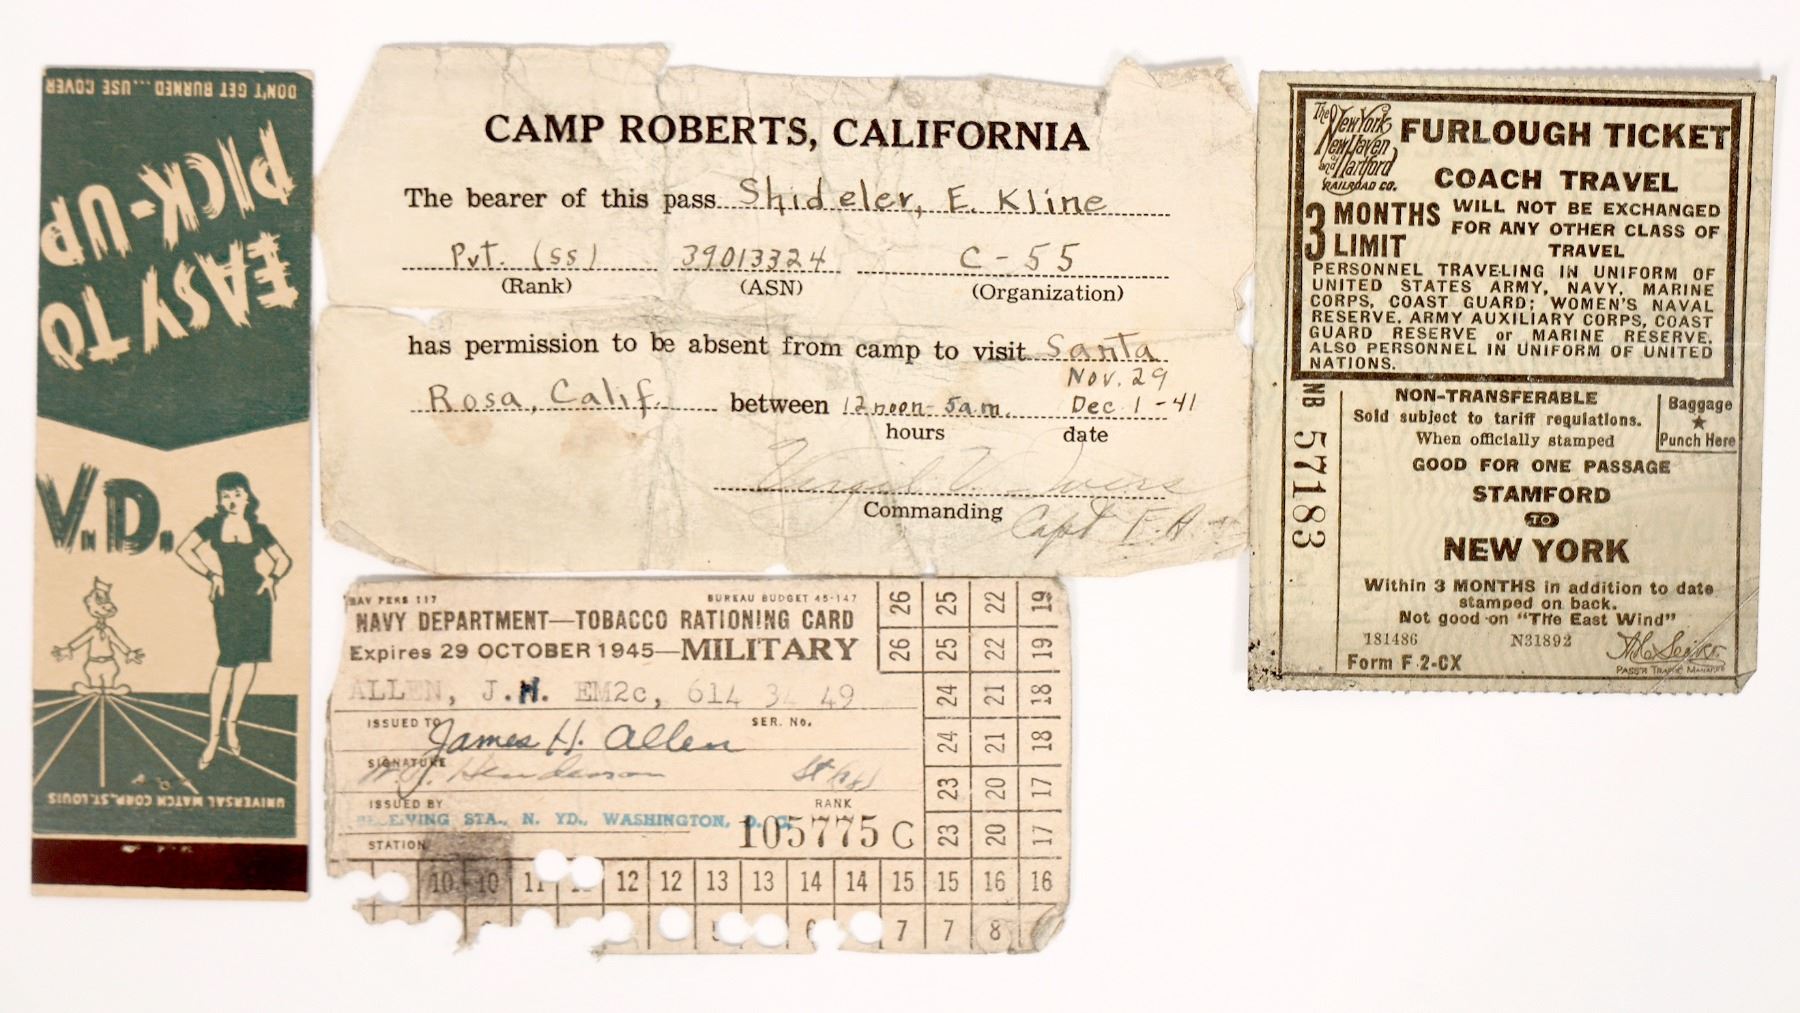 DON'T GET BURNED...USE COVER
EASY TO
PICK-UP
V.D.
UNIVERSAL MATCH CORP., ST. LOUIS
CAMP ROBERTS, CALIFORNIA
The bearer of this pass Shideler, E. Kline
Pvt. (ss) 39013324 C-55
(Rank) (ASN) (Organization)
has permission to be absent from camp to visit Santa
Nov. 29
Rosa, Calif. between 12 noon-5am. Dec. 1-41
hours date
Commanding Capt F.A.
NAV PERS 117 BUREAU BUDGET 45-147
NAVY DEPARTMENT—TOBACCO RATIONING CARD
Expires 29 OCTOBER 1945—MILITARY
ALLEN, J.H. EM2c, 614 34 49
ISSUED TO SER. No.
James H. Allen
SIGNATURE
Henderson
ISSUED BY RANK
STA., N. YD., WASHINGTON, D. C.
105775 C
STATION
26 25 22 19
26 25 22 19
24 21 18
24 21 18
23 20 17
23 20 17
10 10 11 12 12 13 13 14 14 15 15 16 16
7 7 8
The New York New Haven and Hartford RAILROAD CO.
FURLOUGH TICKET
COACH TRAVEL
3 MONTHS LIMIT
WILL NOT BE EXCHANGED
FOR ANY OTHER CLASS OF
TRAVEL
PERSONNEL TRAVELING IN UNIFORM OF
UNITED STATES ARMY, NAVY, MARINE
CORPS, COAST GUARD; WOMEN'S NAVAL
RESERVE, ARMY AUXILIARY CORPS, COAST
GUARD RESERVE or MARINE RESERVE.
ALSO PERSONNEL IN UNIFORM OF UNITED
NATIONS.
NB 57183
NON-TRANSFERABLE
Sold subject to tariff regulations.
When officially stamped
Baggage
★
Punch Here
GOOD FOR ONE PASSAGE
STAMFORD
TO
NEW YORK
Within 3 MONTHS in addition to date
stamped on back.
Not good on "The East Wind"
181486 N31892
Form F.2-CX PASS'R TRAFFIC MANAGER